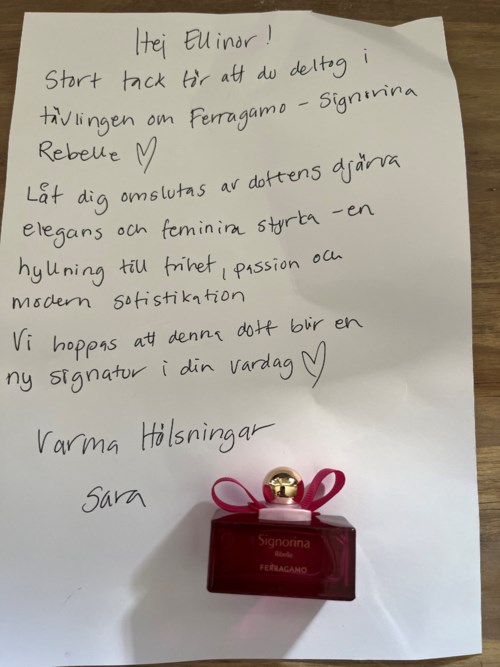 Hej Ellinor!
Stort tack för att du deltog i
tävlingen om Ferragamo - Signorina
Rebelle ♡
Låt dig omslutas av doftens djärva
elegans och feminina styrka - en
hyllning till frihet, passion och
modern sofistikation
Vi hoppas att denna doft blir en
ny signatur i din vardag ♡
Varma Hälsningar
Sara
Signorina
Ribelle
FERRAGAMO